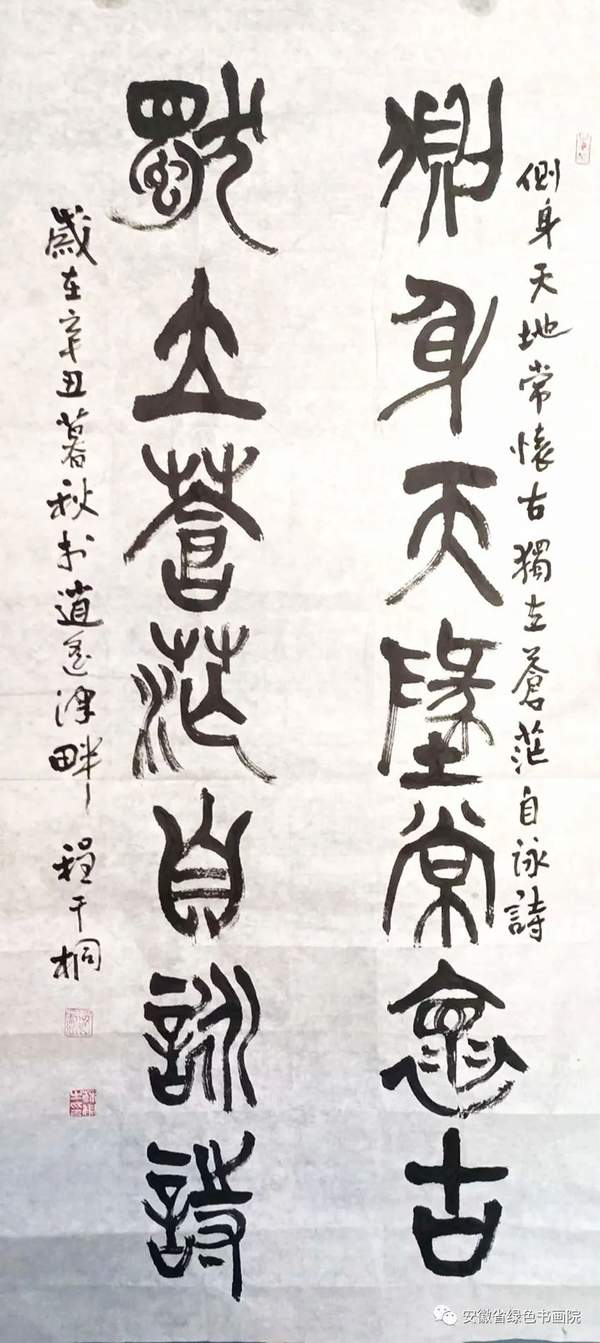 側身天地常懷古獨立蒼茫自詠詩
側身天墬常褱古
獨立蒼茫自詠詩
歲在辛丑暮秋於逍遙津畔 程干桐
安徽省绿色书画院